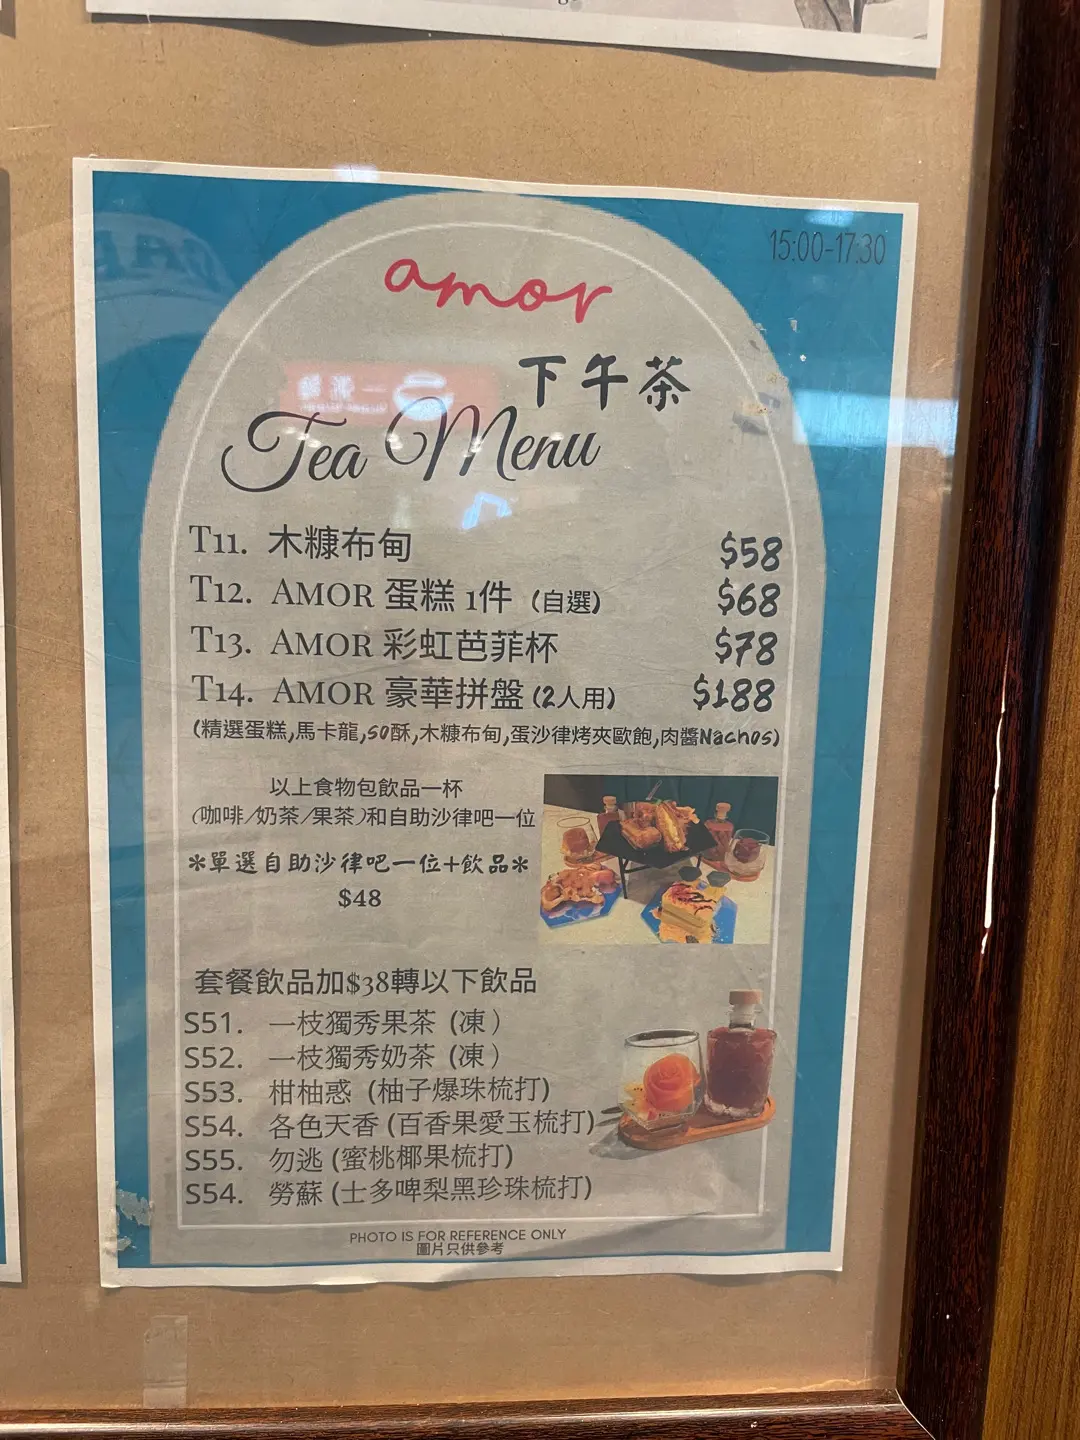 15:00-17:30
amor
下午茶
Tea Menu
T11. 木糠布甸 $58
T12. AMOR 蛋糕 1件 (自選) $68
T13. AMOR 彩虹芭菲杯 $78
T14. AMOR 豪華拼盤 (2人用) $188
(精選蛋糕,馬卡龍,so酥,木糠布甸,蛋沙律烤夾歐飽,肉醬Nachos)
以上食物包飲品一杯
(咖啡/奶茶/果茶)和自助沙律吧一位
*單選自助沙律吧一位+飲品*
$48
套餐飲品加$38轉以下飲品
S51. 一枝獨秀果茶 (凍)
S52. 一枝獨秀奶茶 (凍)
S53. 柑柚惑 (柚子爆珠梳打)
S54. 各色天香 (百香果愛玉梳打)
S55. 勿逃 (蜜桃椰果梳打)
S54. 勞蘇 (士多啤梨黑珍珠梳打)
PHOTO IS FOR REFERENCE ONLY
圖片只供參考